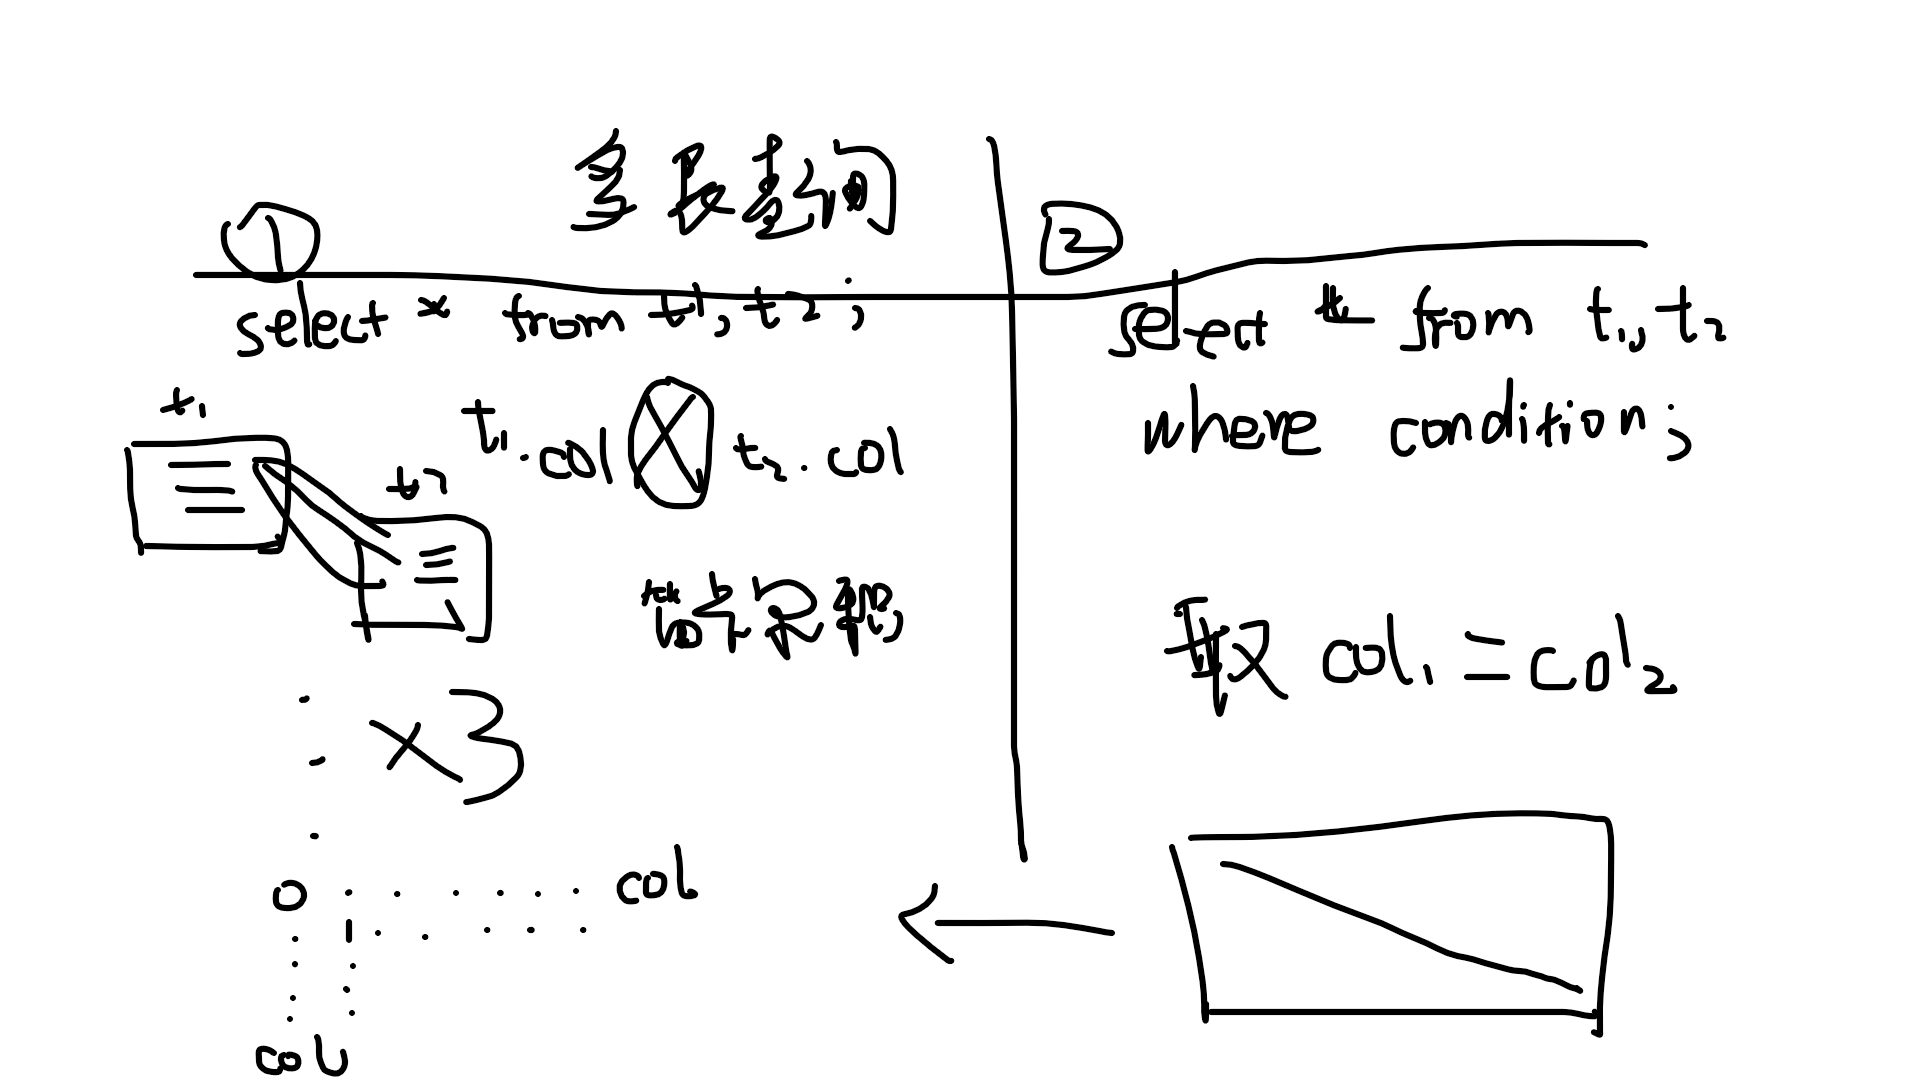 多表查询
①
select * from t1, t2;
t1
t2
t1.col ⊗ t2.col
×3
0 . . . . . . col
1 . . . . .
col
②
select * from t1, t2
where condition;
取 col1 = col2